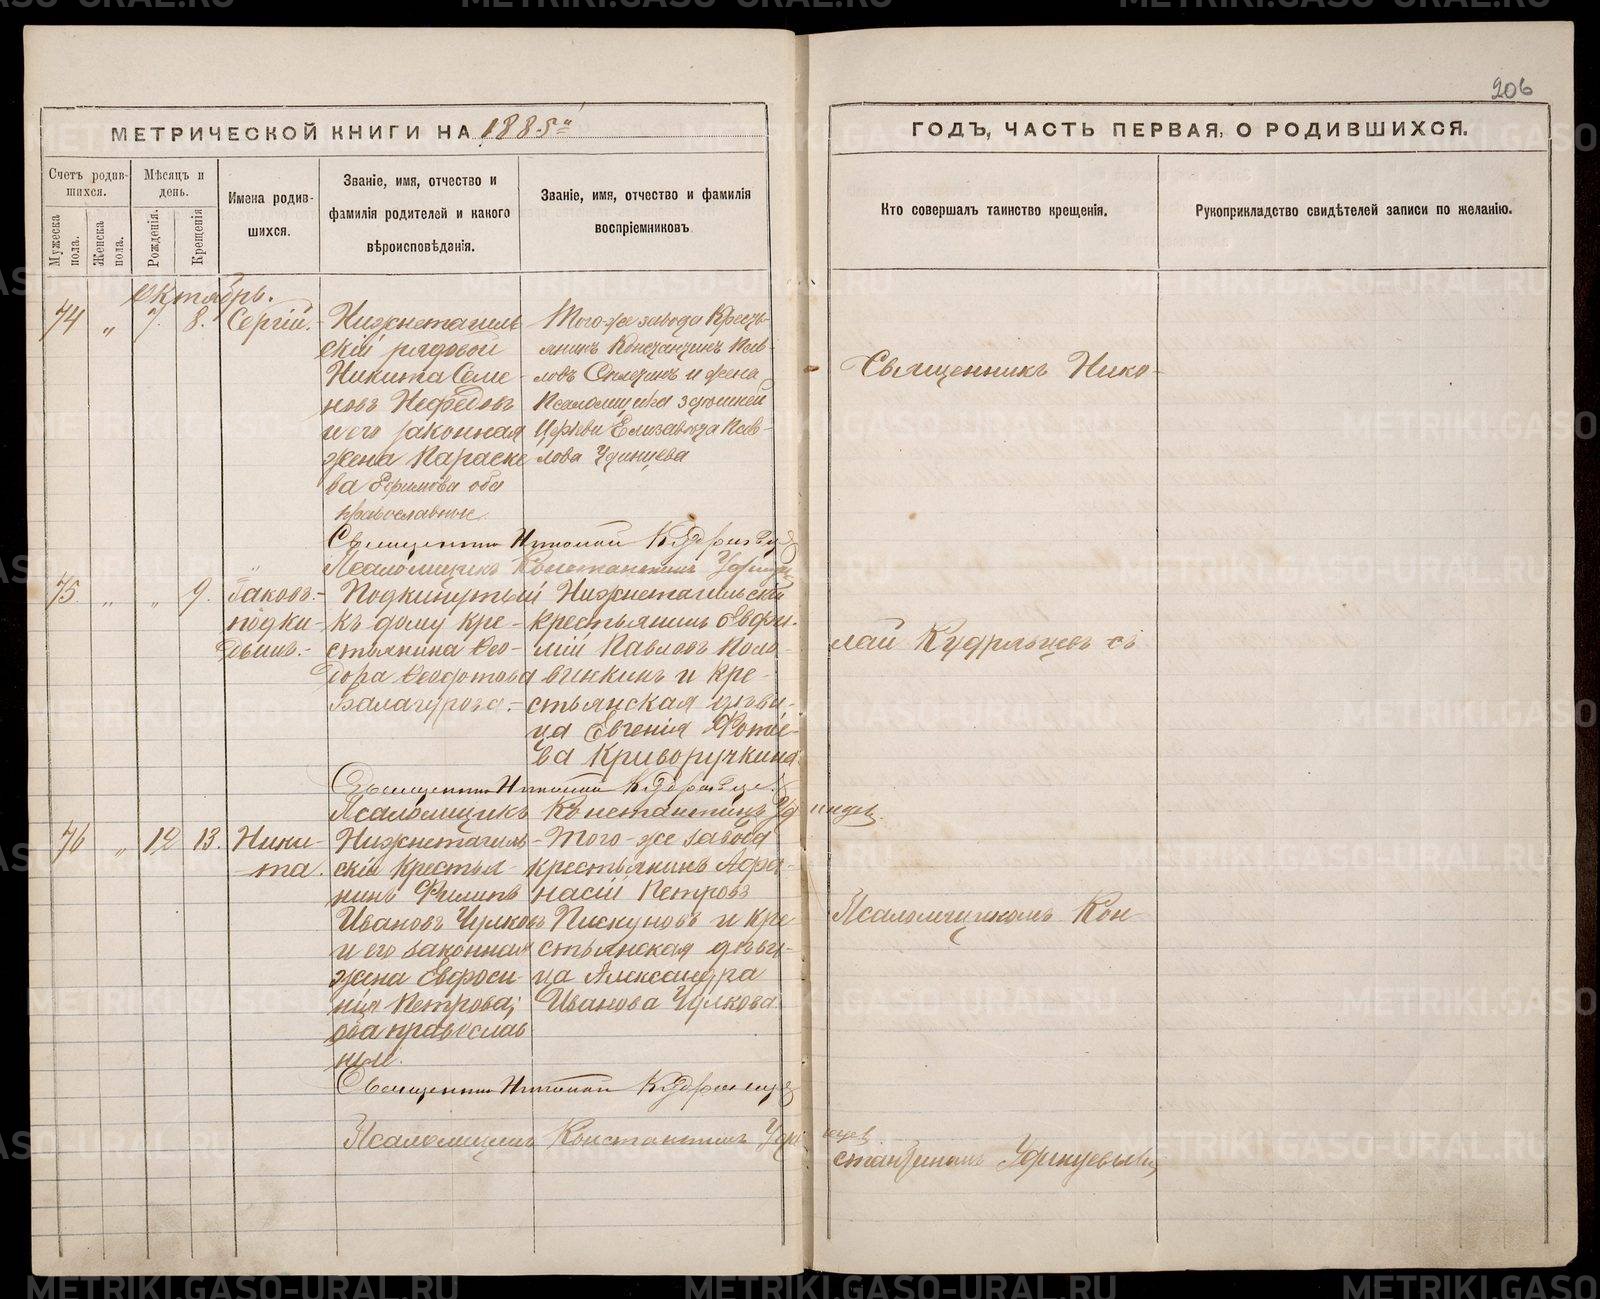 206
МЕТРИЧЕСКОЙ КНИГИ НА 1885й
ГОДЪ, ЧАСТЬ ПЕРВАЯ, О РОДИВШИХСЯ.
Счетъ родив-
шихся.
Мужеска
пола.
Женска
пола.
Мѣсяцъ и
день.
Рожденія.
Крещенія
Имена родив-
шихся.
Званіе, имя, отчество и
фамилія родителей и какого
вѣроисповѣданія.
Званіе, имя, отчество и фамилія
воспріемниковъ
Кто совершалъ таинство крещенія.
Рукоприкладство свидѣтелей записи по желанію.
Октябрь.
74 „ 7. 8. Сергій.
Нижнетагиль
скій рядовой
Никита Семе-
новъ Нефедовъ
и его законная
жена Параске
ва Ефимова оба
православные.
Того-же завода Кресть-
янинъ Константинъ Пав-
ловъ и жена
Псаломщика здешней
Церкви Елизавета Пав-
лова Удинцева
Священникъ Николай Кудрявцев
Псаломщикъ Константинъ Удинцев
75 „ „ 9. Іаковъ-
подки-
дышъ.-
Подкинутый
къ дому кре-
стьянина Ѳео-
дора Ѳеодотова
Балагурова.-
Нижнетагильскій
крестьянинъ Евфи-
мій Павловъ Поло-
винкинъ и кре-
стьянская дѣви-
ца Евгенія Фотіе-
ва Криворучкина
Священникъ Николай Кудрявцев
Псаломщикъ Константинъ Удинцев.
76 „ 12 13. Ники-
та.
Нижнетагиль-
скій Крестья-
нинъ Филипъ
Ивановъ Чулковъ
и его законная
жена Евфроси-
нія Петрова;
оба православ
ные.
Того-же завода
крестьянинъ Афа-
насій Петровъ
Пискуновъ и кре
стьянская дѣви-
ца Александра
Иванова Чулкова.
Священникъ Николай Кудрявцев
Псаломщикъ Константинъ Удинцев
Священникъ Нико-
лай Кудрявцевъ съ
Псаломщикомъ Кон-
стантиномъ Удинцевымъ
METRIKI.GASO-URAL.RU